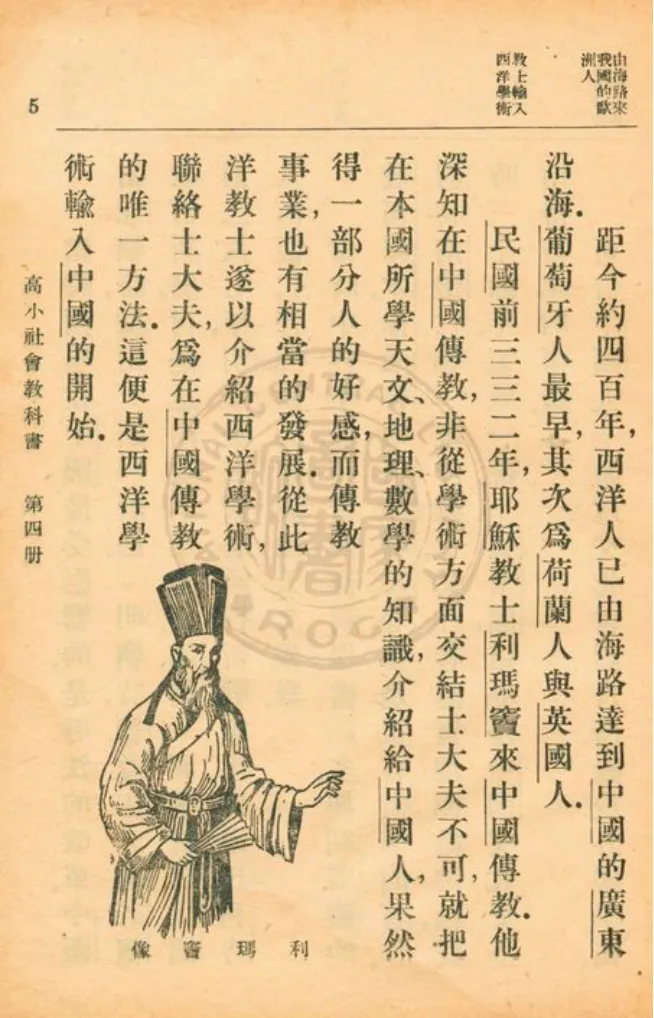 由海路來
我國的歐
洲人
教士輸入
西洋學術
5
距今約四百年,西洋人已由海路達到中國的廣東
沿海.葡萄牙人最早,其次爲荷蘭人與英國人.
民國前三三二年,耶穌教士利瑪竇來中國傳教.他
深知在中國傳教,非從學術方面交結士大夫不可,就把
在本國所學天文、地理、數學的知識,介紹給中國人,果然
得一部分人的好感,而傳教
事業,也有相當的發展.從此
洋教士遂以介紹西洋學術,
聯絡士大夫,爲在中國傳教
的唯一方法.這便是西洋學
術輸入中國的開始.
利瑪竇像
高小社會教科書 第四册